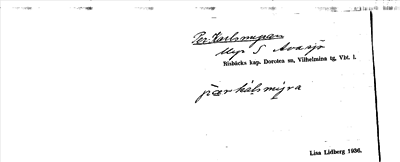 Per-Karlsmyran
Myr S Avasjö
Risbäcks kap. Dorotea sn, Vilhelmina tg, Vbt. l.
pærkálsmýra
Lisa Lidberg 1936.